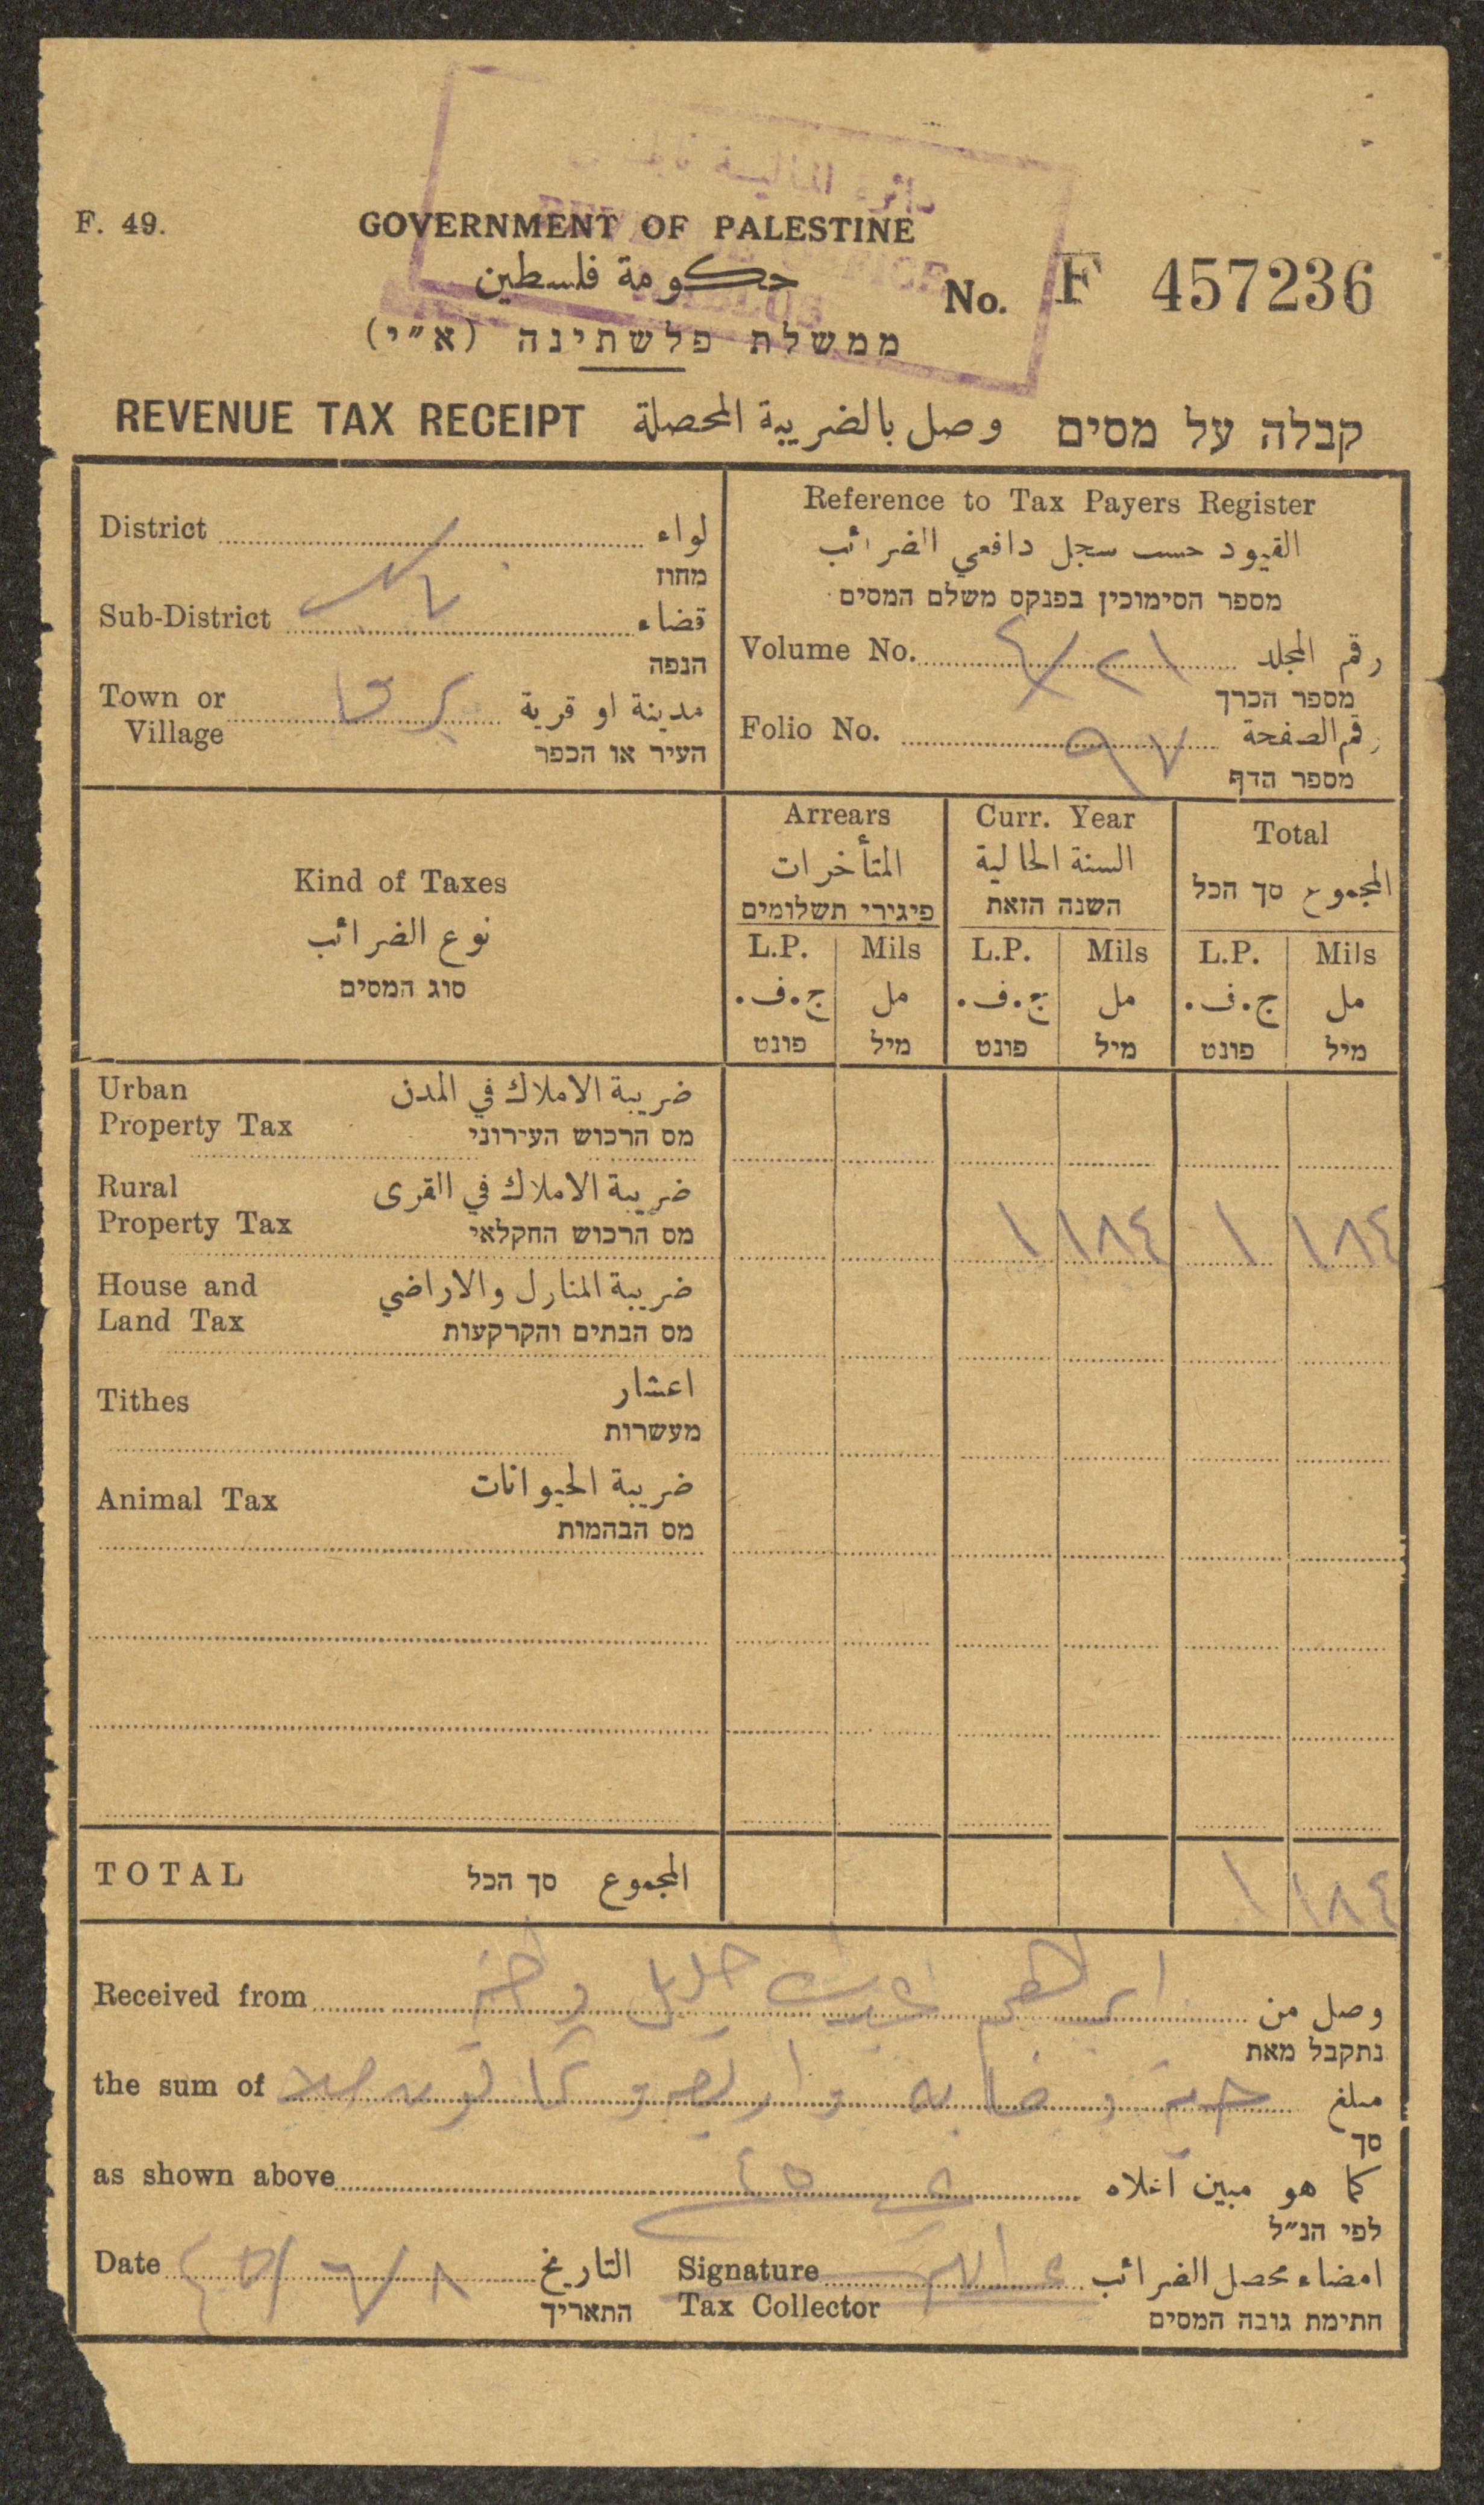 F. 49.
GOVERNMENT OF PALESTINE
حكومة فلسطين
No. F 457236
ממשלת פלשתינה (א״י)
REVENUE TAX RECEIPT وصل بالضريبة المحصلة קבלה על מסים
District لواء
מחוז
Sub-District قضاء
הנפה
Town or Village مدينة او قرية
העיר או הכפר
Reference to Tax Payers Register
القيود حسب سجل دافعي الضرائب
מספר הסימוכין בפנקס משלם המסים
Volume No. رقم المجلد
מספר הכרך
Folio No. ٩٧ رقم الصفحة
מספר הדף
Kind of Taxes
نوع الضرائب
סוג המסים
Arrears
المتأخرات
פיגורי תשלומים
Curr. Year
السنة الحالية
השנה הזאת
Total
المجموع סך הכל
L.P. Mils L.P. Mils L.P. Mils
ج.ف. مل ج.ف. مل ج.ف. مل
פונט מיל פונט מיל פונט מיל
Urban Property Tax ضريبة الاملاك في المدن
מס הרכוש העירוני
Rural Property Tax ضريبة الاملاك في القرى
מס הרכוש החקלאי
١ ١٨٤ ١ ١٨٤
House and Land Tax ضريبة المنازل والاراضي
מס הבתים והקרקעות
Tithes اعشار
מעשרות
Animal Tax ضريبة الحيوانات
מס הבהמות
TOTAL المجموع סך הכל ١ ١٨٤
Received from ابراهيم خليل وصل من
נתקבל מאת
the sum of مبلغ
סך
as shown above كما هو مبين اعلاه
לפי הנ״ל
Date التاريخ
התאריך
Signature Tax Collector امضاء محصل الضرائب
חתימת גובה המסים